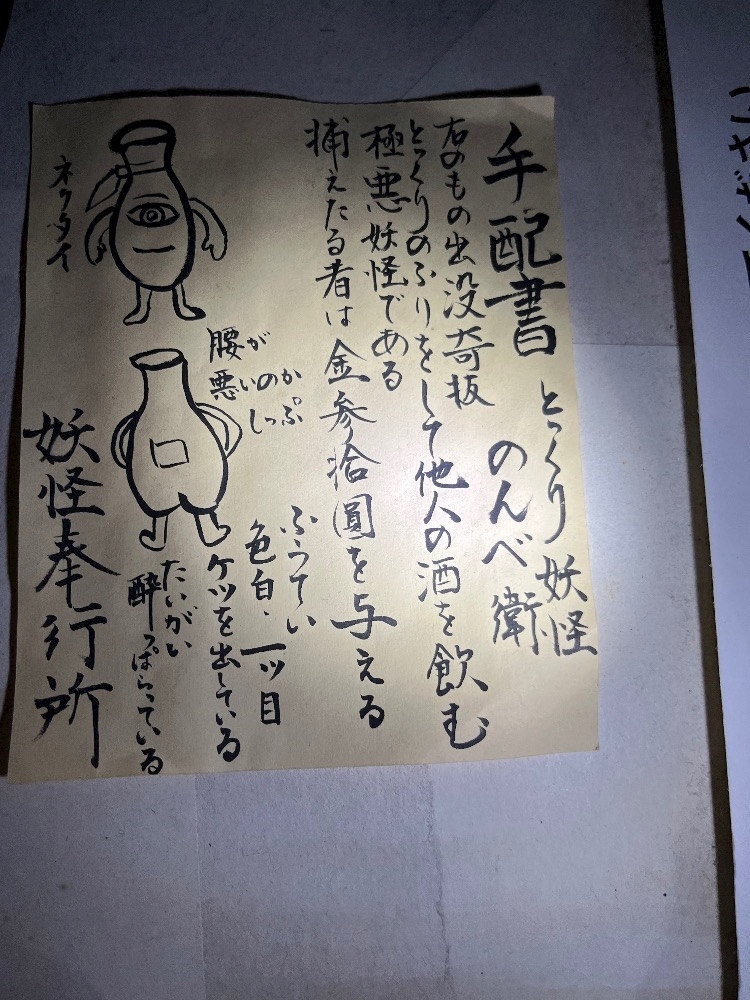 手配書
とっくり妖怪
のんべ衛
右のもの出没奇抜
とっくりのふりをして他人の酒を飲む
極悪妖怪である
捕えたる者は金参拾圓を与える
ふうてい
色白・一ッ目
ケツを出している
たいがい
酔っぱらっている
腰が
悪いのか
しっぷ
ネクタイ
妖怪奉行所